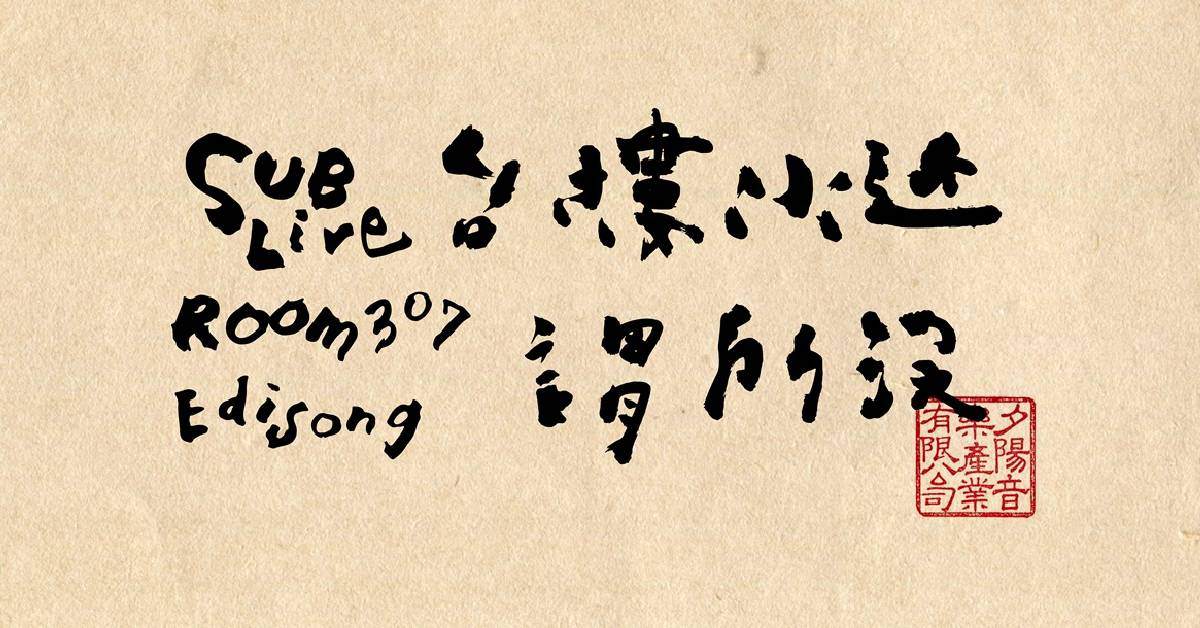 SUB
Live
Room307
Edisong
近水樓台
沒所謂
夕陽音
樂產業
有限公司